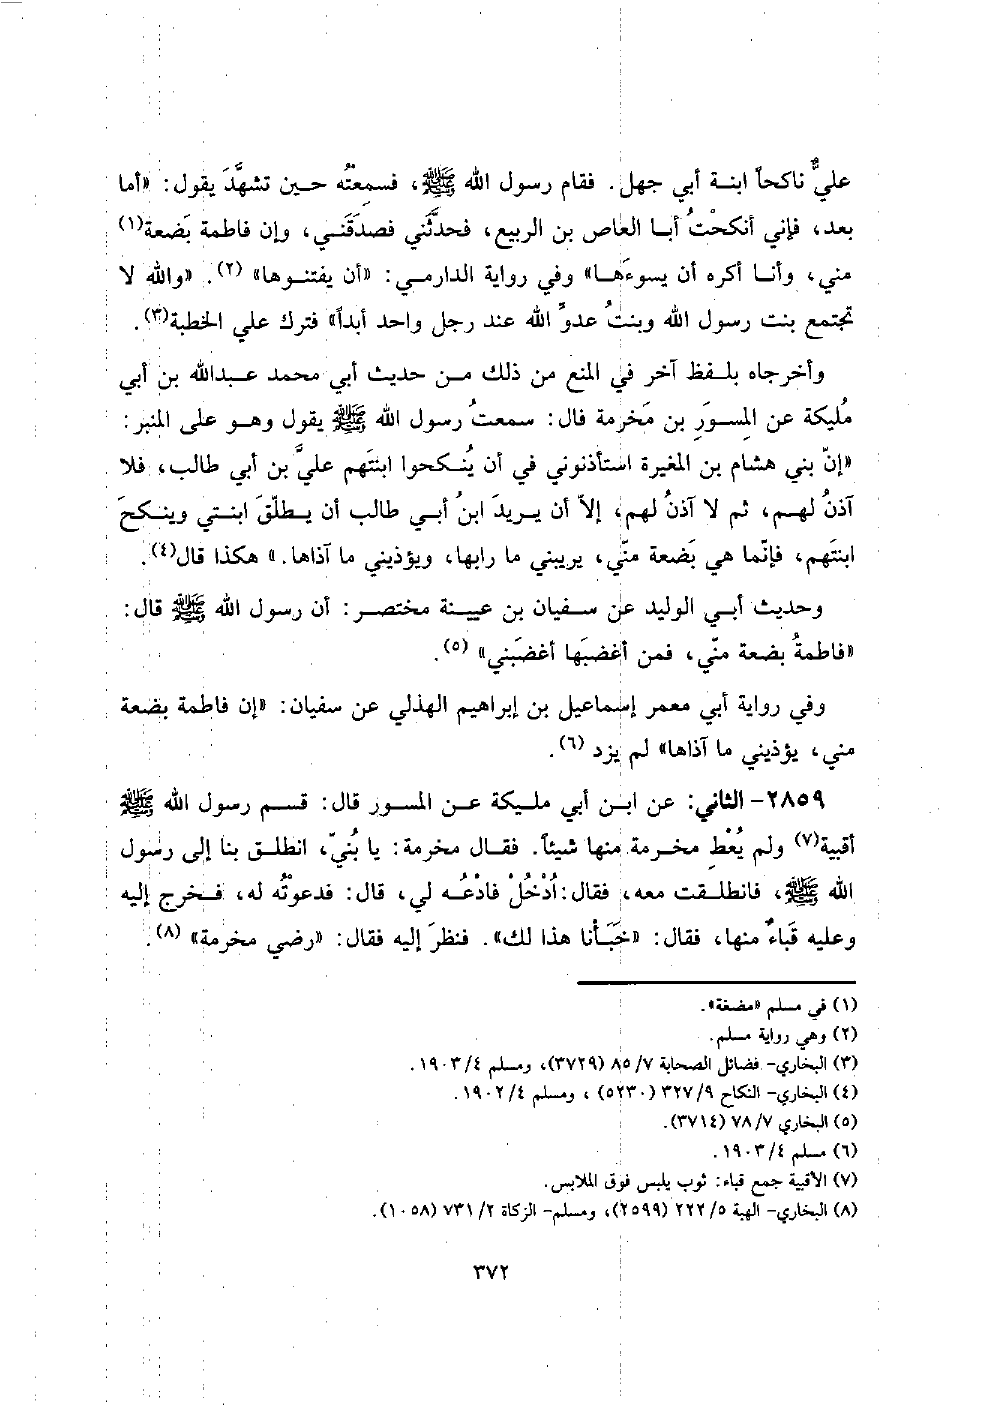 عليٌّ ناكحاً ابنة أبي جهل. فقام رسول الله ﷺ، فسمِعتُه حين تشهَّدَ يقول: «أما
بعد، فإني أنكحْتُ أبا العاص بن الربيع، فحدَّثني فصدَقَني، وإن فاطمة بَضعة(١)
مني، وأنا أكره أن يسوءَها» وفي رواية الدارمي: «أن يفتنوها» (٢). «والله لا
تجتمع بنت رسول الله وبنتُ عدوِّ الله عند رجل واحد أبداً» فترك علي الخطبة(٣).
وأخرجاه بلفظ آخر في المنع من ذلك من حديث أبي محمد عبدالله بن أبي
مُليكة عن المِسوَرِ بن مَخرمة قال: سمعتُ رسول الله ﷺ يقول وهو على المنبر:
«إنّ بني هشام بن المغيرة استأذنوني في أن يُنكحوا ابنتَهم عليَّ بن أبي طالب، فلا
آذنُ لهم، ثم لا آذنُ لهم، إلاّ أن يريدَ ابنُ أبي طالب أن يطلّقَ ابنتي وينكحَ
ابنتَهم، فإنّما هي بَضعة منّي، يريبني ما رابها، ويؤذيني ما آذاها.» هكذا قال(٤).
وحديث أبي الوليد عن سفيان بن عيينة مختصر: أن رسول الله ﷺ قال:
«فاطمةُ بضعة منّي، فمن أغضبَها أغضبَني» (٥).
وفي رواية أبي معمر إسماعيل بن إبراهيم الهذلي عن سفيان: «إن فاطمة بضعة
مني، يؤذيني ما آذاها» لم يزد (٦).
٢٨٥٩- الثاني: عن ابن أبي مليكة عن المسور قال: قسم رسول الله ﷺ
أقبية(٧) ولم يُعْطِ مخرمة منها شيئاً. فقال مخرمة: يا بُنيّ، انطلق بنا إلى رسول
الله ﷺ، فانطلقت معه، فقال: اُدْخُلْ فادْعُه لي، قال: فدعوتُه له، فخرج إليه
وعليه قَباءٌ منها، فقال: «خَبَأنا هذا لك». فنظرَ إليه فقال: «رضي مخرمة» (٨).
(١) في مسلم «مضغة».
(٢) وهي رواية مسلم.
(٣) البخاري- فضائل الصحابة ٨٥/٧ (٣٧٢٩)، ومسلم ١٩٠٣/٤.
(٤) البخاري- النكاح ٣٢٧/٩ (٥٢٣٠) ، ومسلم ١٩٠٢/٤.
(٥) البخاري ٧٨/٧ (٣٧١٤).
(٦) مسلم ١٩٠٣/٤.
(٧) الأقبية جمع قباء: ثوب يلبس فوق الملابس.
(٨) البخاري- الهبة ٢٢٢/٥ (٢٥٩٩)، ومسلم- الزكاة ٧٣١/٢ (١٠٥٨).
٣٧٢